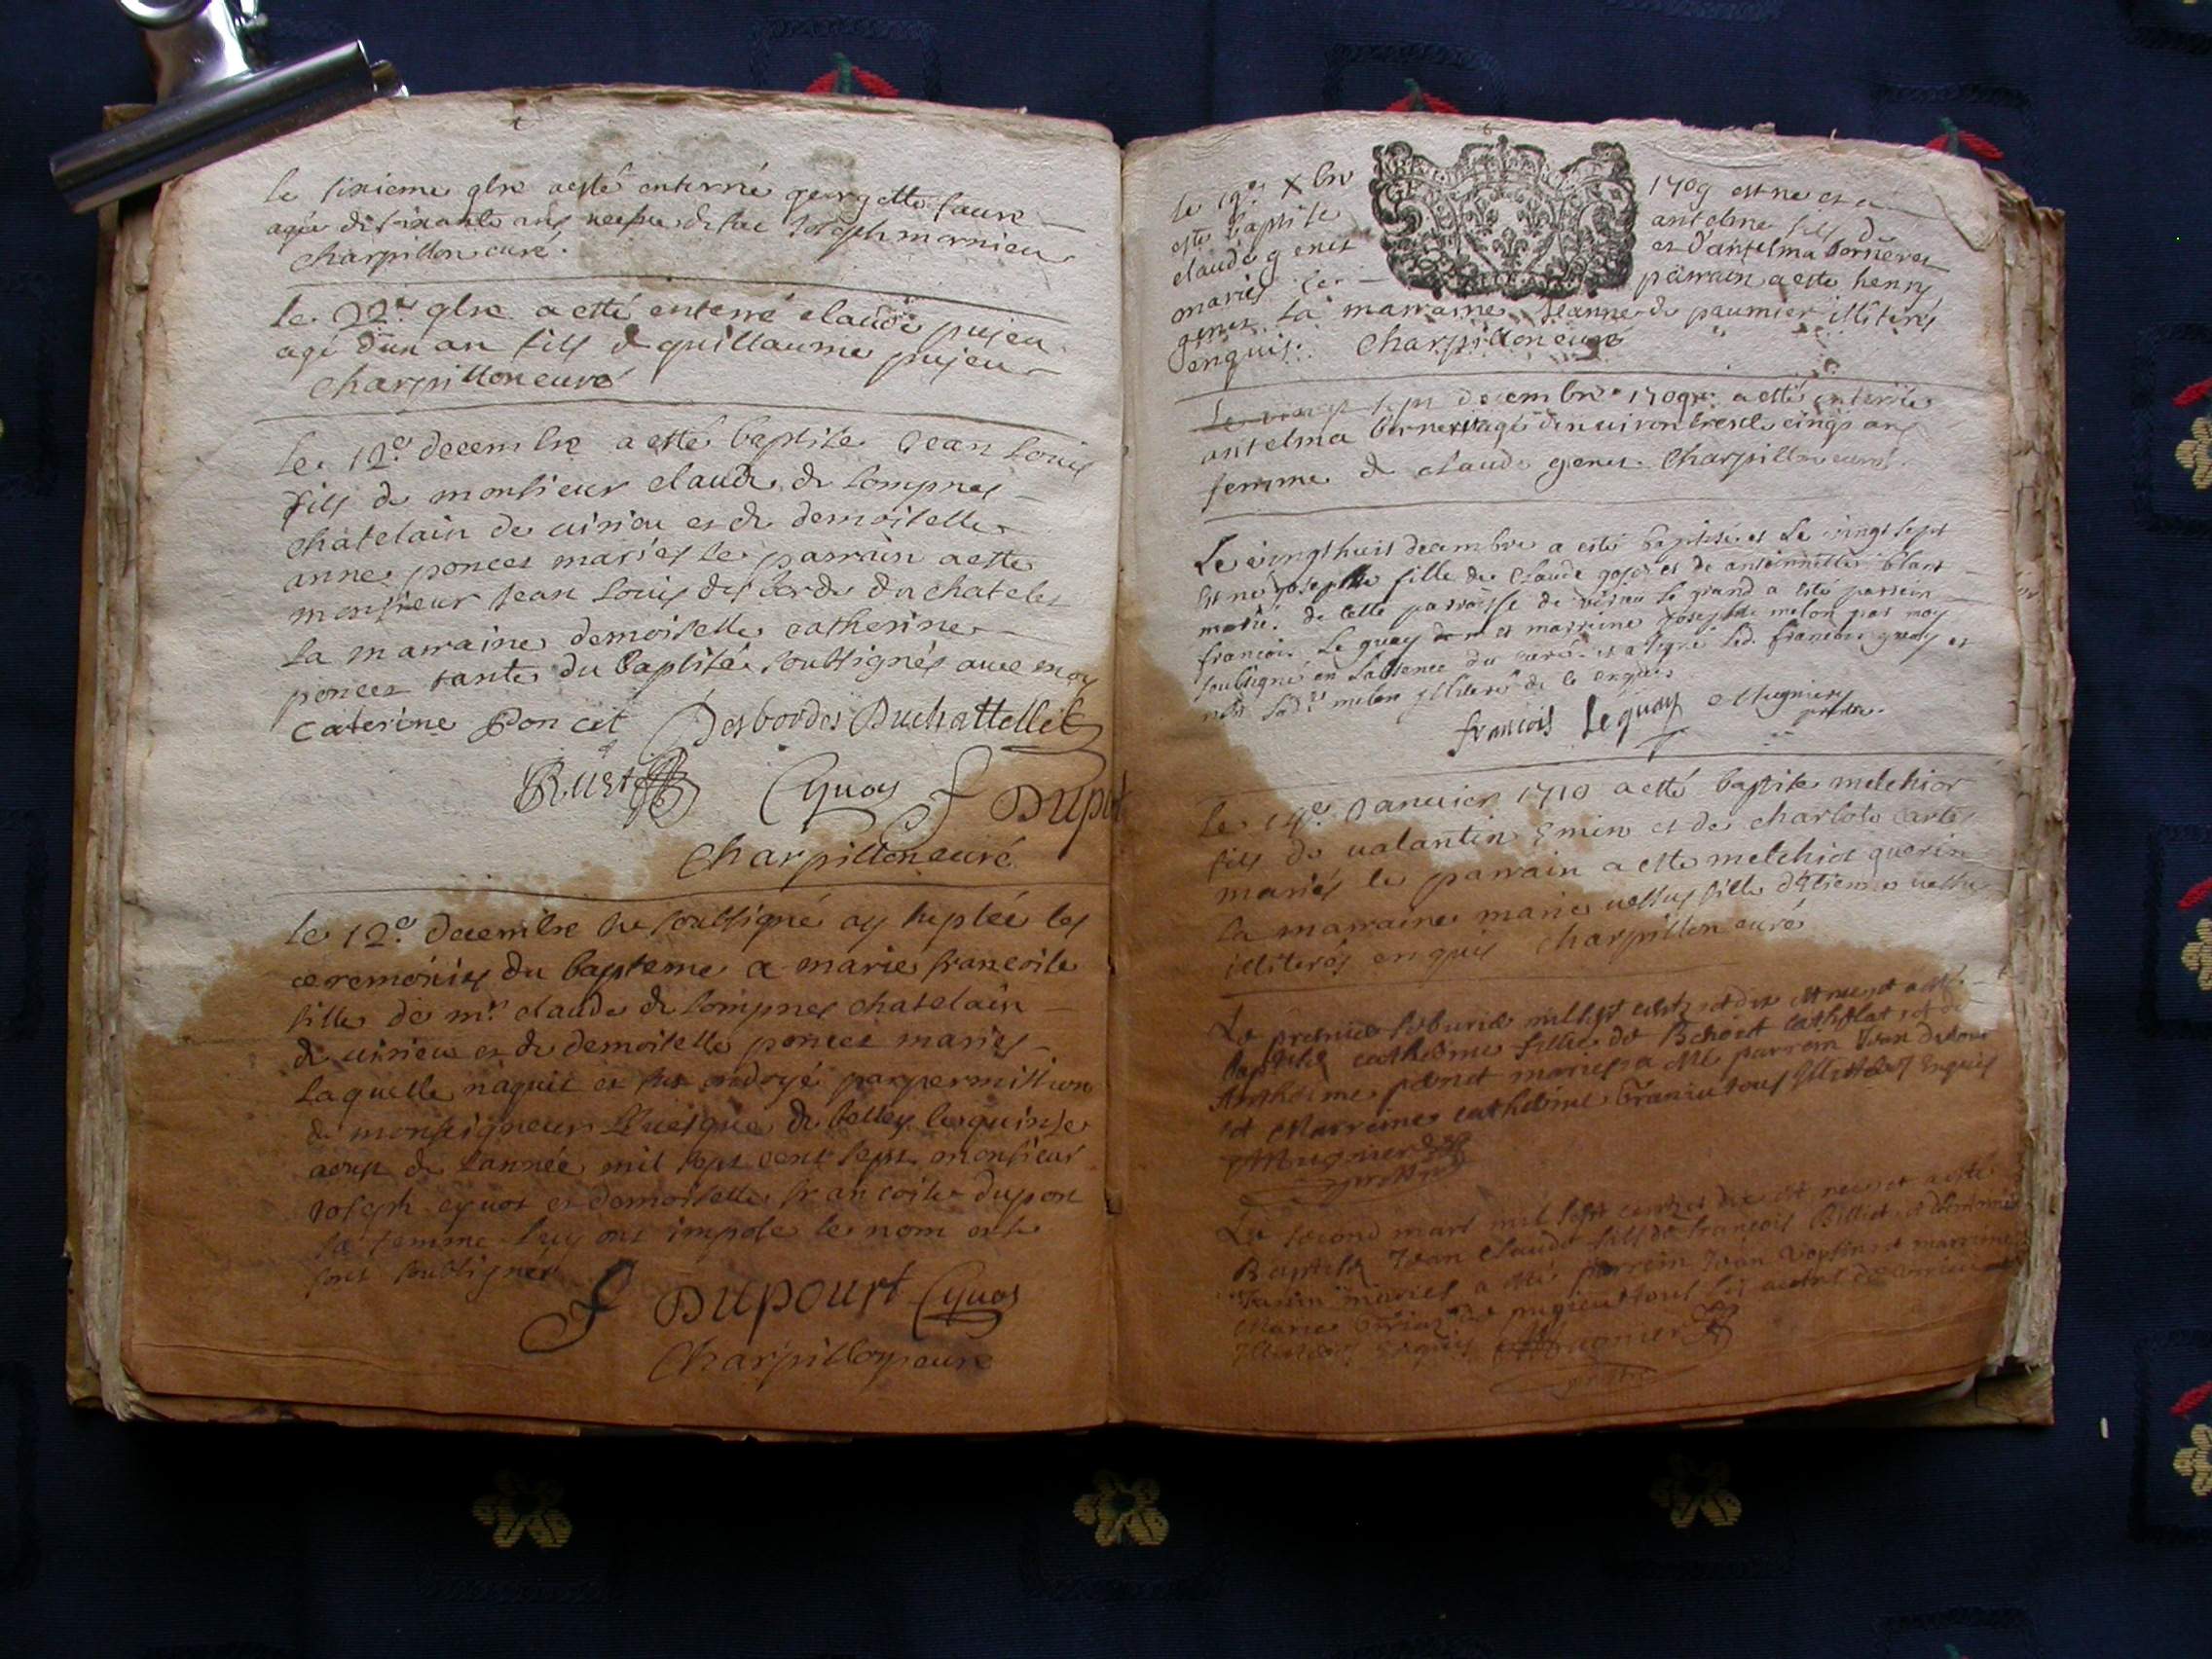 le sixieme 9bre a esté enterré georgette faure
agée de soixante ans veufve de feu Joseph mornieu
Charpillon curé.
le 22e 9bre a esté enterré claude pujeu
agé dun an fils de guillaume pujeu
Charpillon curé
le 12e decembre a esté baptisé Jean Louis
fils de monsieur claude de Lompnes
chatelain de virieu et de demoiselle
anne poncet mariés le parrain a esté
monsieur Jean Louis des bordes du chatelet
La marraine demoiselle catherine
poncet tante du baptisé soussignés avec moy
Caterine Poncet Desbordes Duchattellet
Rust Cyuos f Dupo
Charpillon curé
le 12e decembre Je soussigné ay supleé les
ceremonies du bapteme a marie francoise
fille de mr claude de Lompnes chatelain
de virieu et de demoiselle poncet mariés
laquelle naquit et fut ondoyé par permission
de monseigneur L'uesque de belley le quinse
aoust de l'année mil sept cent sept monsieur
Joseph cyuos et demoiselle francoise dupont
sa femme luy ont imposé le nom et se
sont soussignes
f Dupourt Cyuos
Charpillon curé
le 19e Xbre 1709 est né et a
esté baptisé antelme fils de
claude genet et d'antelma bornerat
mariés Le parrain a esté henry
genet La marraine Jeanne de paumier illiterés
enquis. Charpillon curé
Le vingt sept decembre 1709 a esté enterrée
antelma bornera agé denuiron trente cinq ans
femme de claude genet. Charpillon curé.
Le vingt huit decembre a esté baptisée et Le vingt sept
est né Josephte fille de Claude et de antoinette blanc
mariés de cette parroisse de virieu le grand a esté parrein
francois Le guay et marreine Josephte melon par moy
soubsigné en L'absence du curé et a signé led. francois guay et
non lad.e melon illiteré de ce enquise
francois Le guay Mugnier
prestre.
le 14e Januier 1710 a esté baptisé melchior
fils de valantin Emin et de charlote
mariés le parrain a esté melchior guerin
La marraine marie vettus fille d'Etienne vettus
illiterés enquis Charpillon curé
Le premier feburier mil sept centz et dix est née et a esté
baptisée catherine fille de Benoict et de
Antheme mariés a esté parrein Jean
et Marreine catherine tous illiterés enquis
Mugnier
prestre
Le second mars mil sept centz et dix est né et a esté
Baptisé Jean Claude fils de francois Billiet et
Janin mariés a esté parrein Jean et marreine
Marie de pugieu tous
illiterés enquis Mugnier
prestre